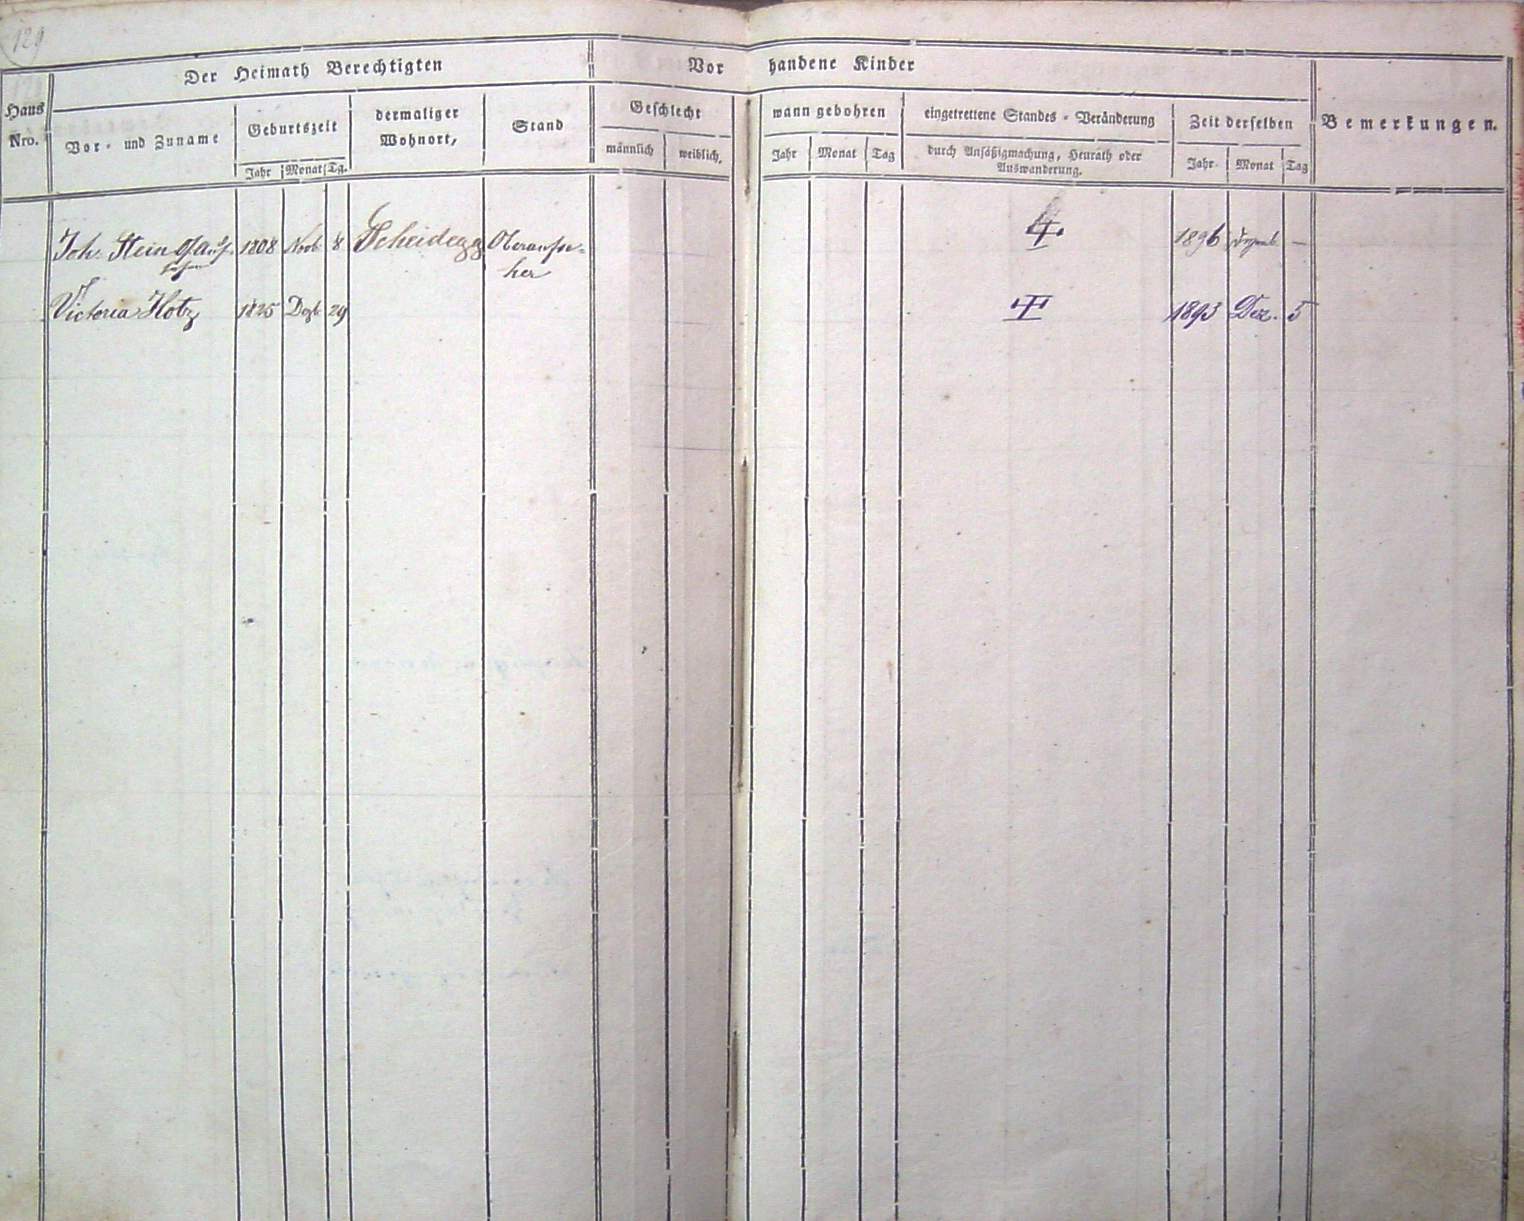 129
Der Heimath Berechtigten
Vor handene Kinder
Haus Nro.
Vor- und Zuname
Geburtszeit
dermaliger Wohnort,
Stand
Geschlecht
wann gebohren
eingetrettene Standes-Veränderung
Zeit derselben
Bemerkungen.
Jahr Monat Tg.
männlich weiblich.
Jahr Monat Tag
durch Ansäßigmachung, Heurath oder
Auswanderung.
Jahr Monat Tag
Joh. Stein 1808 Novb 8 Scheidegg Oberaufse- 1896 Dezemb. —
her
Victoria Hotz 1825 Dezb 29 1893 Dez. 5